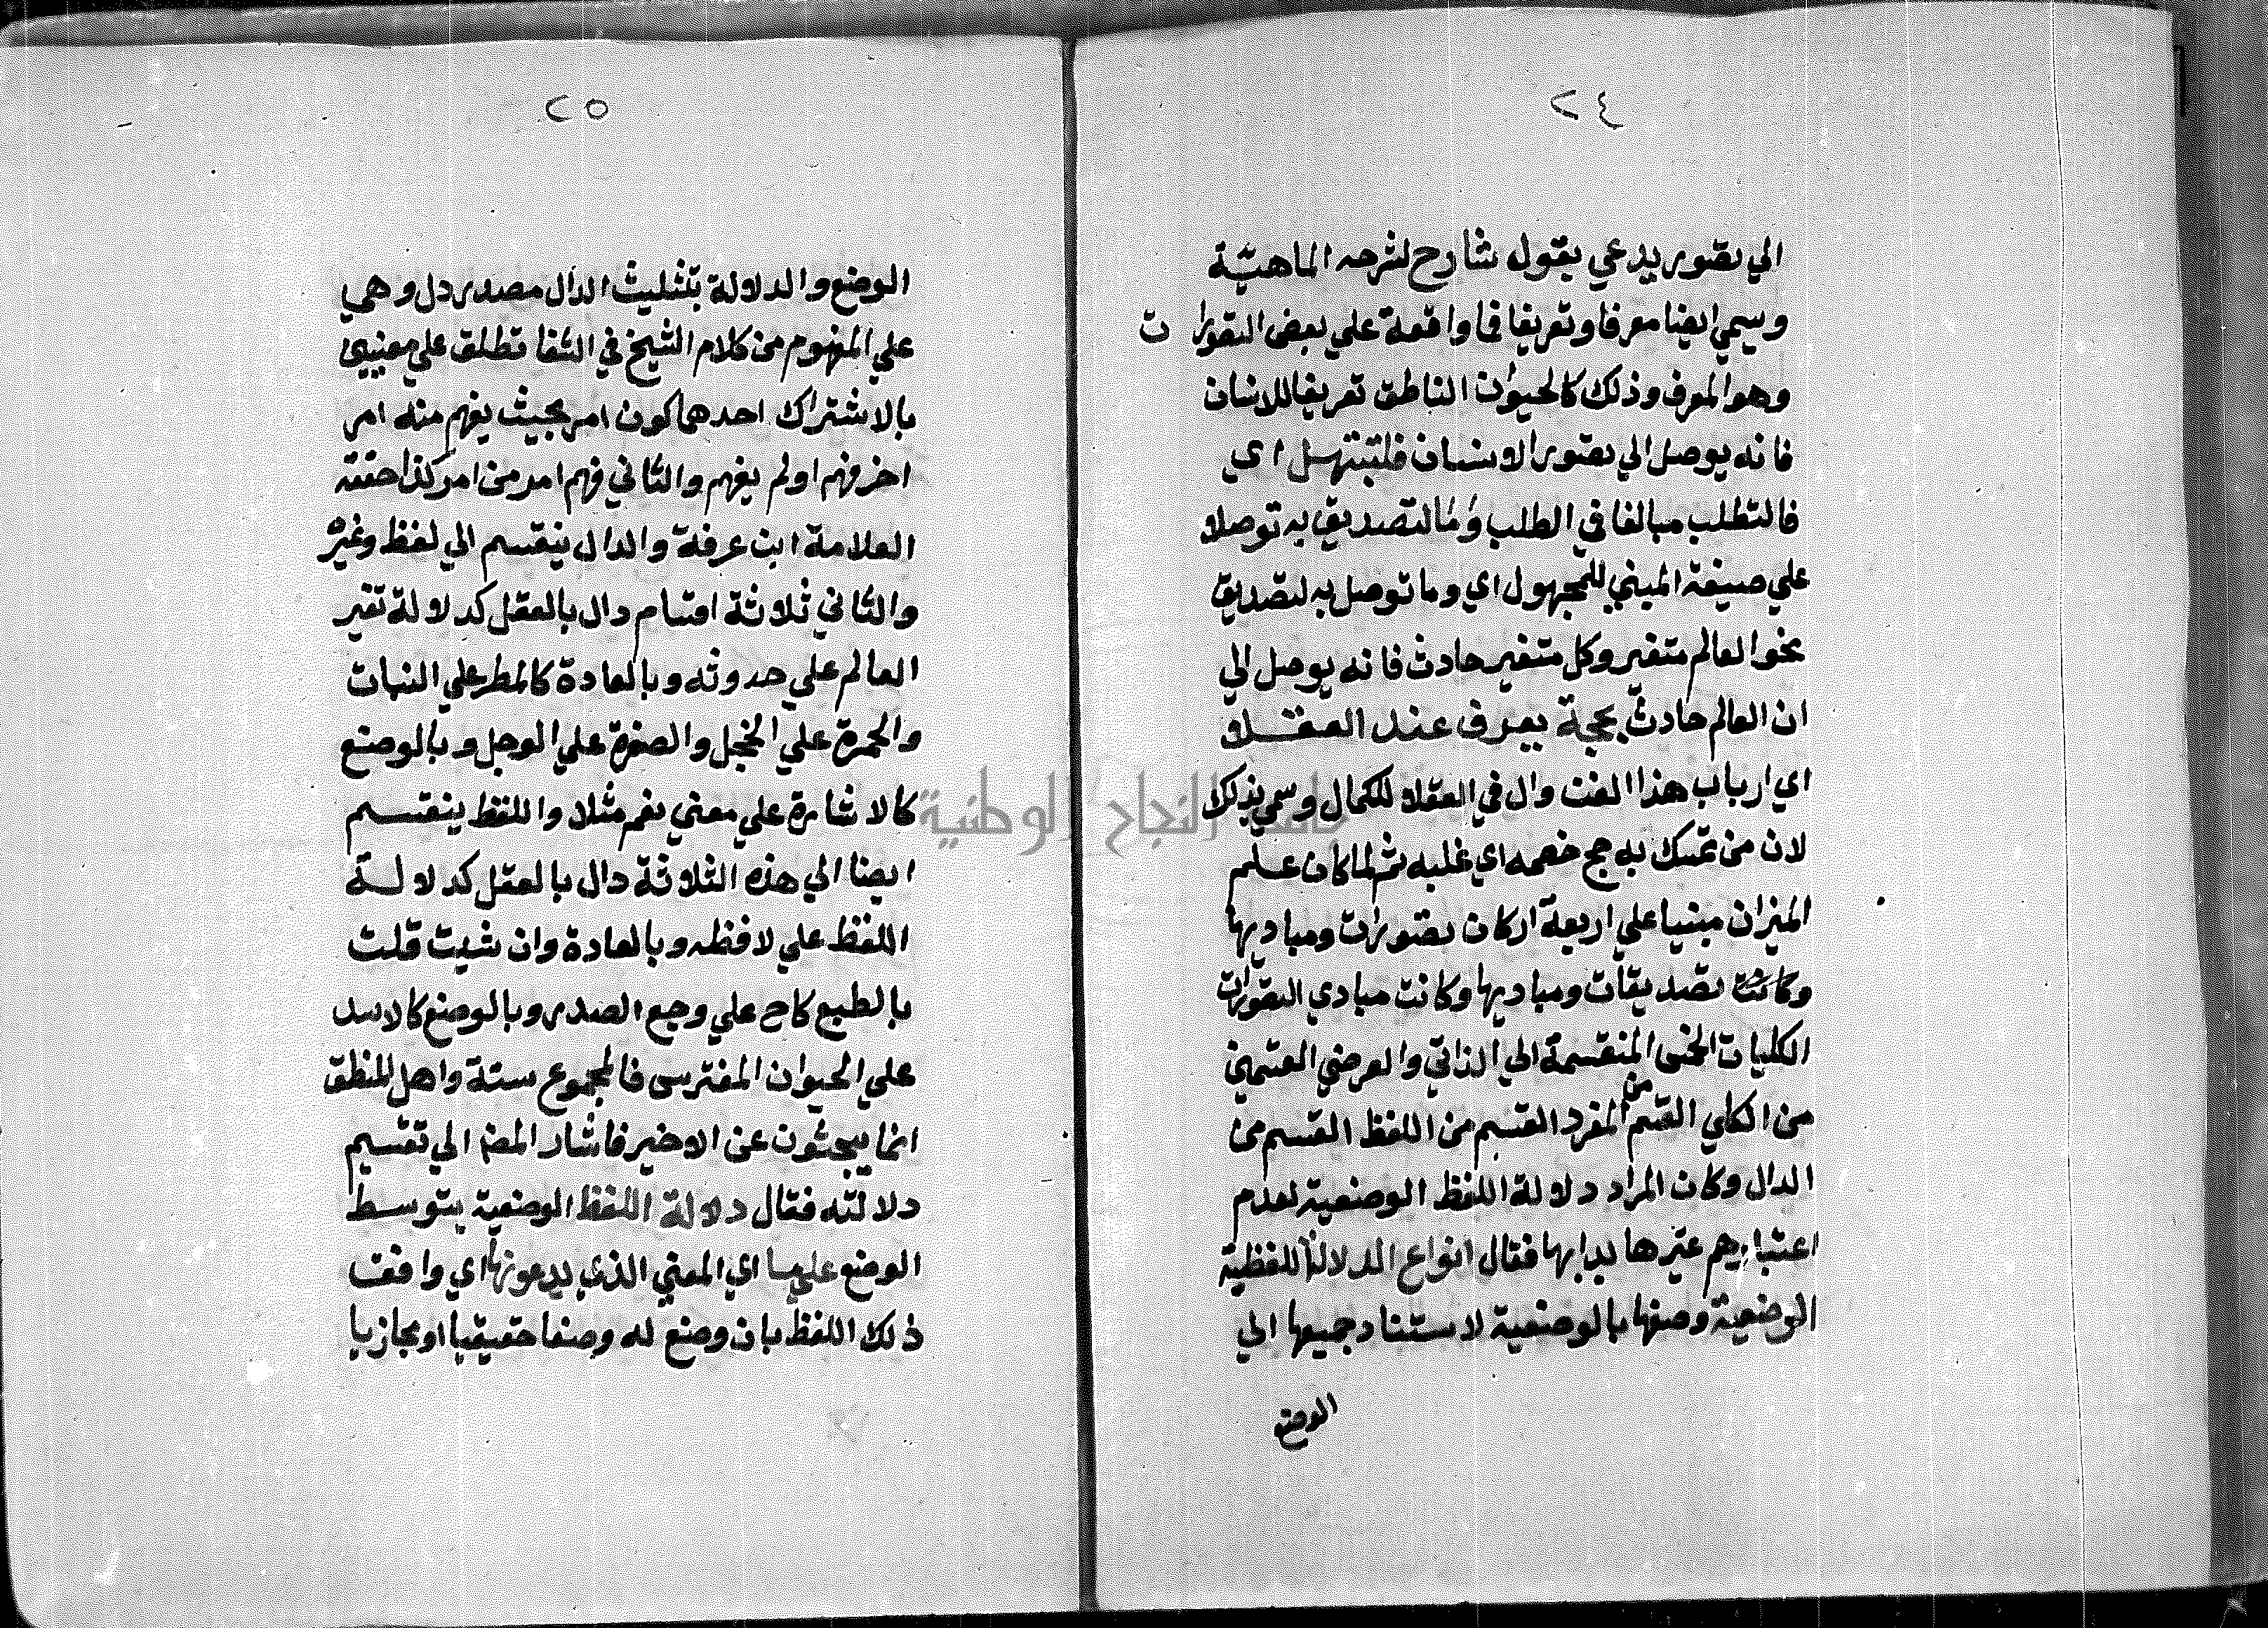 ٢٤
الي تصور يدعي بقول شارح لشرحه الماهية
وسمي ايضا معرفا وتعريفا فما واقعة علي بعض التصورات
وهو المعرف وذلك كالحيوان الناطق تعريفا للانسان
فانه يوصل الي تصور الانسان فلتبتهل اي
فالتطلب مبالغا في الطلب وما لتصديق به توصلا
علي صيغة المبني للمجهول اي وما توصل به لتصديق
نحو العالم متغير وكل متغير حادث فانه يوصل الي
ان العالم حادث بحجة يعرف عند العقلا
اي ارباب هذا الفن وال في العقلا للكمال وسمي بذلك
لان من تمسك به حج خصمه اي غلبه ثم لما كان علم
الميزان مبنيا علي اربعة اركان تصورات ومباديها
وكانت تصديقات ومباديها وكانت مبادي التصورات
الكليات الخمس المنقسمة الي الذاتي والعرضي القسمين
من الكلي القسم من المفرد القسم من اللفظ القسم من
الدال وكان المراد دلالة اللفظ الوضعية لعدم
اعتبارهم غيرها بدا بها فقال انواع الدلالة اللفظية
الوضعية وصفها بالوضعية لاستناد جميعها الي
الوضع
٢٥
الوضع والدلالة بتثليث الدال مصدر دل وهي
علي المفهوم من كلام الشيخ في الشفا تطلق علي معنيين
بالاشتراك احدهما كون امر بحيث يفهم منه امر
اخر فهم او لم يفهم والثاني فهم امر من امر كذا حققه
العلامة ابن عرفة والدال ينقسم الي لفظ وغيره
والثاني ثلاثة اقسام دال بالعقل كدلالة تغير
العالم علي حدوثه وبالعادة كالمطر علي النبات
والحمرة علي الخجل والصفرة علي الوجل وبالوضع
كالاشارة علي معني نعم مثلا واللفظ ينقسم
ايضا الي هذه الثلاثة دال بالعقل كدلالة
اللفظ علي لافظه وبالعادة وان شيت قلت
بالطبع كاح علي وجع الصدر وبالوضع كالاسد
علي الحيوان المفترس فالمجموع ستة واهل المنطق
انما يبحثون عن الاخير فاشار المصنف الي تقسيم
دلالته فقال دلالة اللفظ الوضعية بتوسط
الوضع علي ما اي المعني الذي يدعونها اي وافقت
ذلك اللفظ بان وضع له وضعا حقيقيا او مجازيا
جامعة النجاح الوطنية